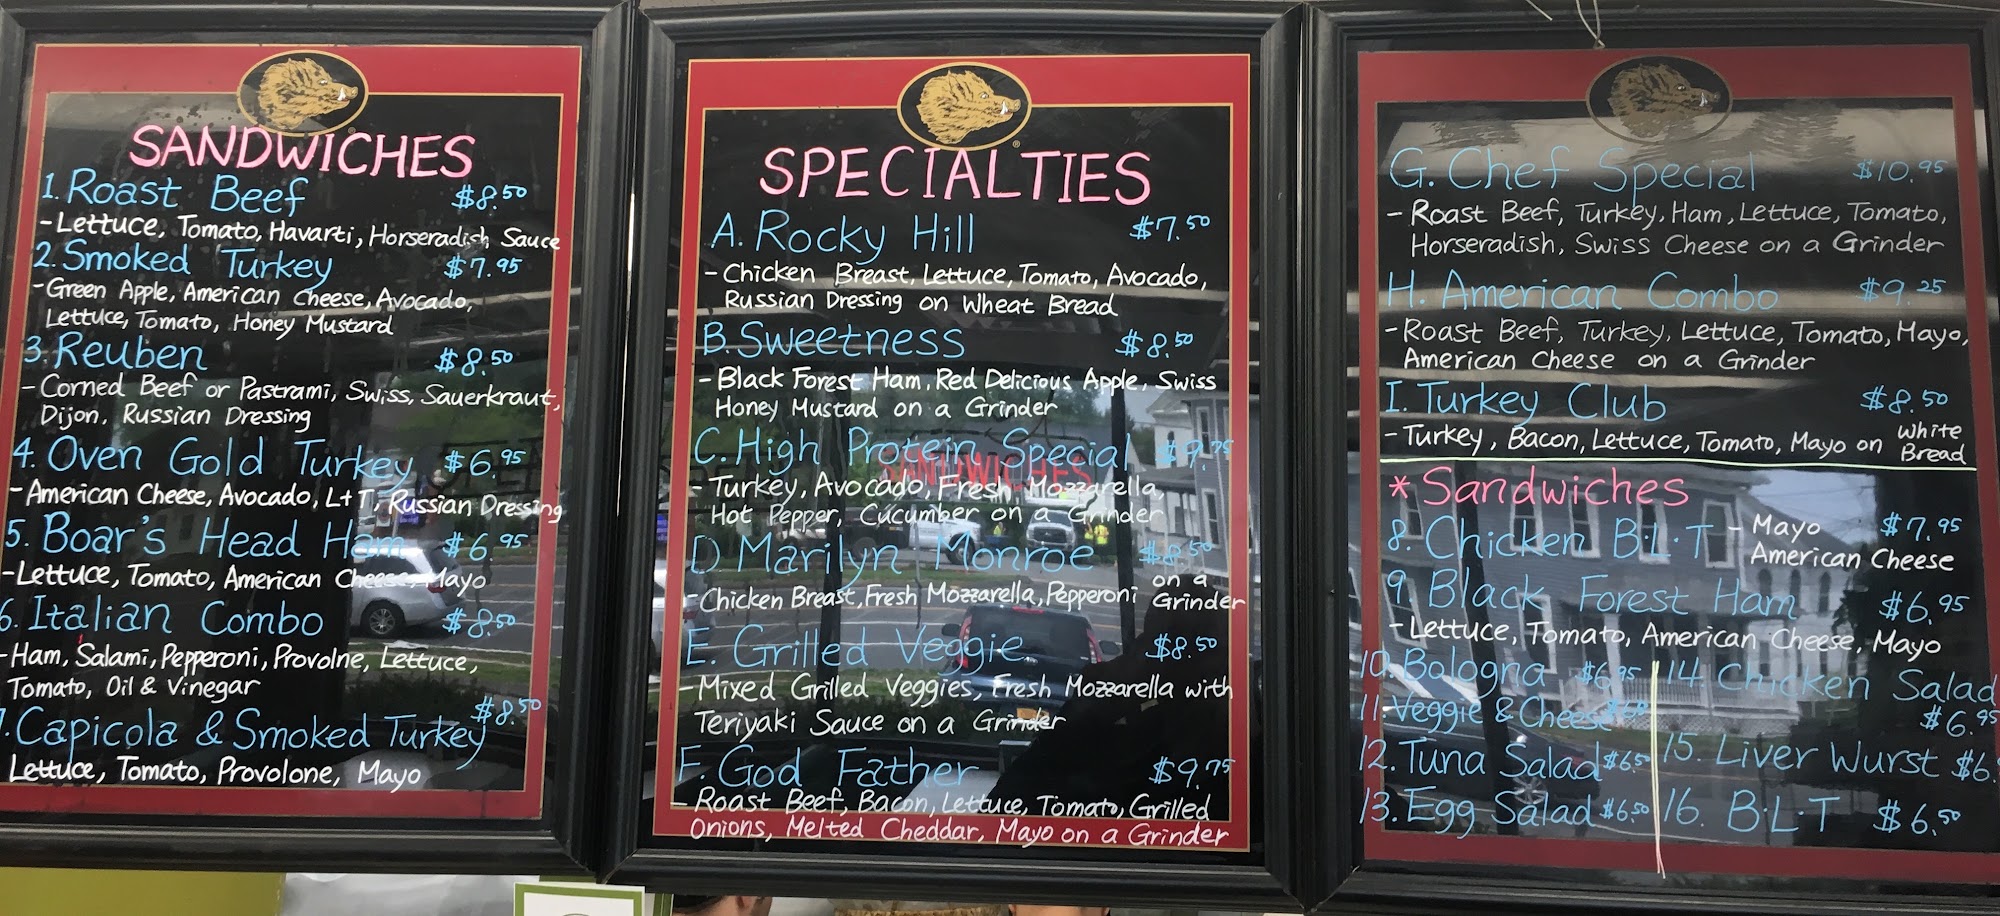 SANDWICHES
1. Roast Beef $8.50
- Lettuce, Tomato, Havarti, Horseradish Sauce
2. Smoked Turkey $7.95
- Green Apple, American Cheese, Avocado,
Lettuce, Tomato, Honey Mustard
3. Reuben $8.50
- Corned Beef or Pastrami, Swiss, Sauerkraut,
Dijon, Russian Dressing
4. Oven Gold Turkey $6.95
- American Cheese, Avocado, L+T, Russian Dressing
5. Boar's Head Ham $6.95
- Lettuce, Tomato, American Cheese, Mayo
6. Italian Combo $8.50
- Ham, Salami, Pepperoni, Provolne, Lettuce,
Tomato, Oil & Vinegar
7. Capicola & Smoked Turkey $8.50
Lettuce, Tomato, Provolone, Mayo
SPECIALTIES
A. Rocky Hill $7.50
- Chicken Breast, Lettuce, Tomato, Avocado,
Russian Dressing on Wheat Bread
B. Sweetness $8.50
- Black Forest Ham, Red Delicious Apple, Swiss
Honey Mustard on a Grinder
C. High Protein Special $9.75
- Turkey, Avocado, Fresh Mozzarella,
Hot Pepper, Cucumber on a Grinder
D. Marilyn Monroe $8.50
- Chicken Breast, Fresh Mozzarella, Pepperoni on a Grinder
E. Grilled Veggie $8.50
- Mixed Grilled Veggies, Fresh Mozzarella with
Teriyaki Sauce on a Grinder
F. God Father $9.75
- Roast Beef, Bacon, Lettuce, Tomato, Grilled
Onions, Melted Cheddar, Mayo on a Grinder
G. Chef Special $10.95
- Roast Beef, Turkey, Ham, Lettuce, Tomato,
Horseradish, Swiss Cheese on a Grinder
H. American Combo $9.25
- Roast Beef, Turkey, Lettuce, Tomato, Mayo,
American Cheese on a Grinder
I. Turkey Club $8.50
- Turkey, Bacon, Lettuce, Tomato, Mayo on White Bread
* Sandwiches
8. Chicken B.L.T - Mayo $7.95
American Cheese
9. Black Forest Ham $6.95
- Lettuce, Tomato, American Cheese, Mayo
10. Bologna $6.95
11. Veggie & Cheese
12. Tuna Salad $6.50
13. Egg Salad $6.50
14. Chicken Salad
$6.95
15. Liver Wurst
16. B.L.T $6.50